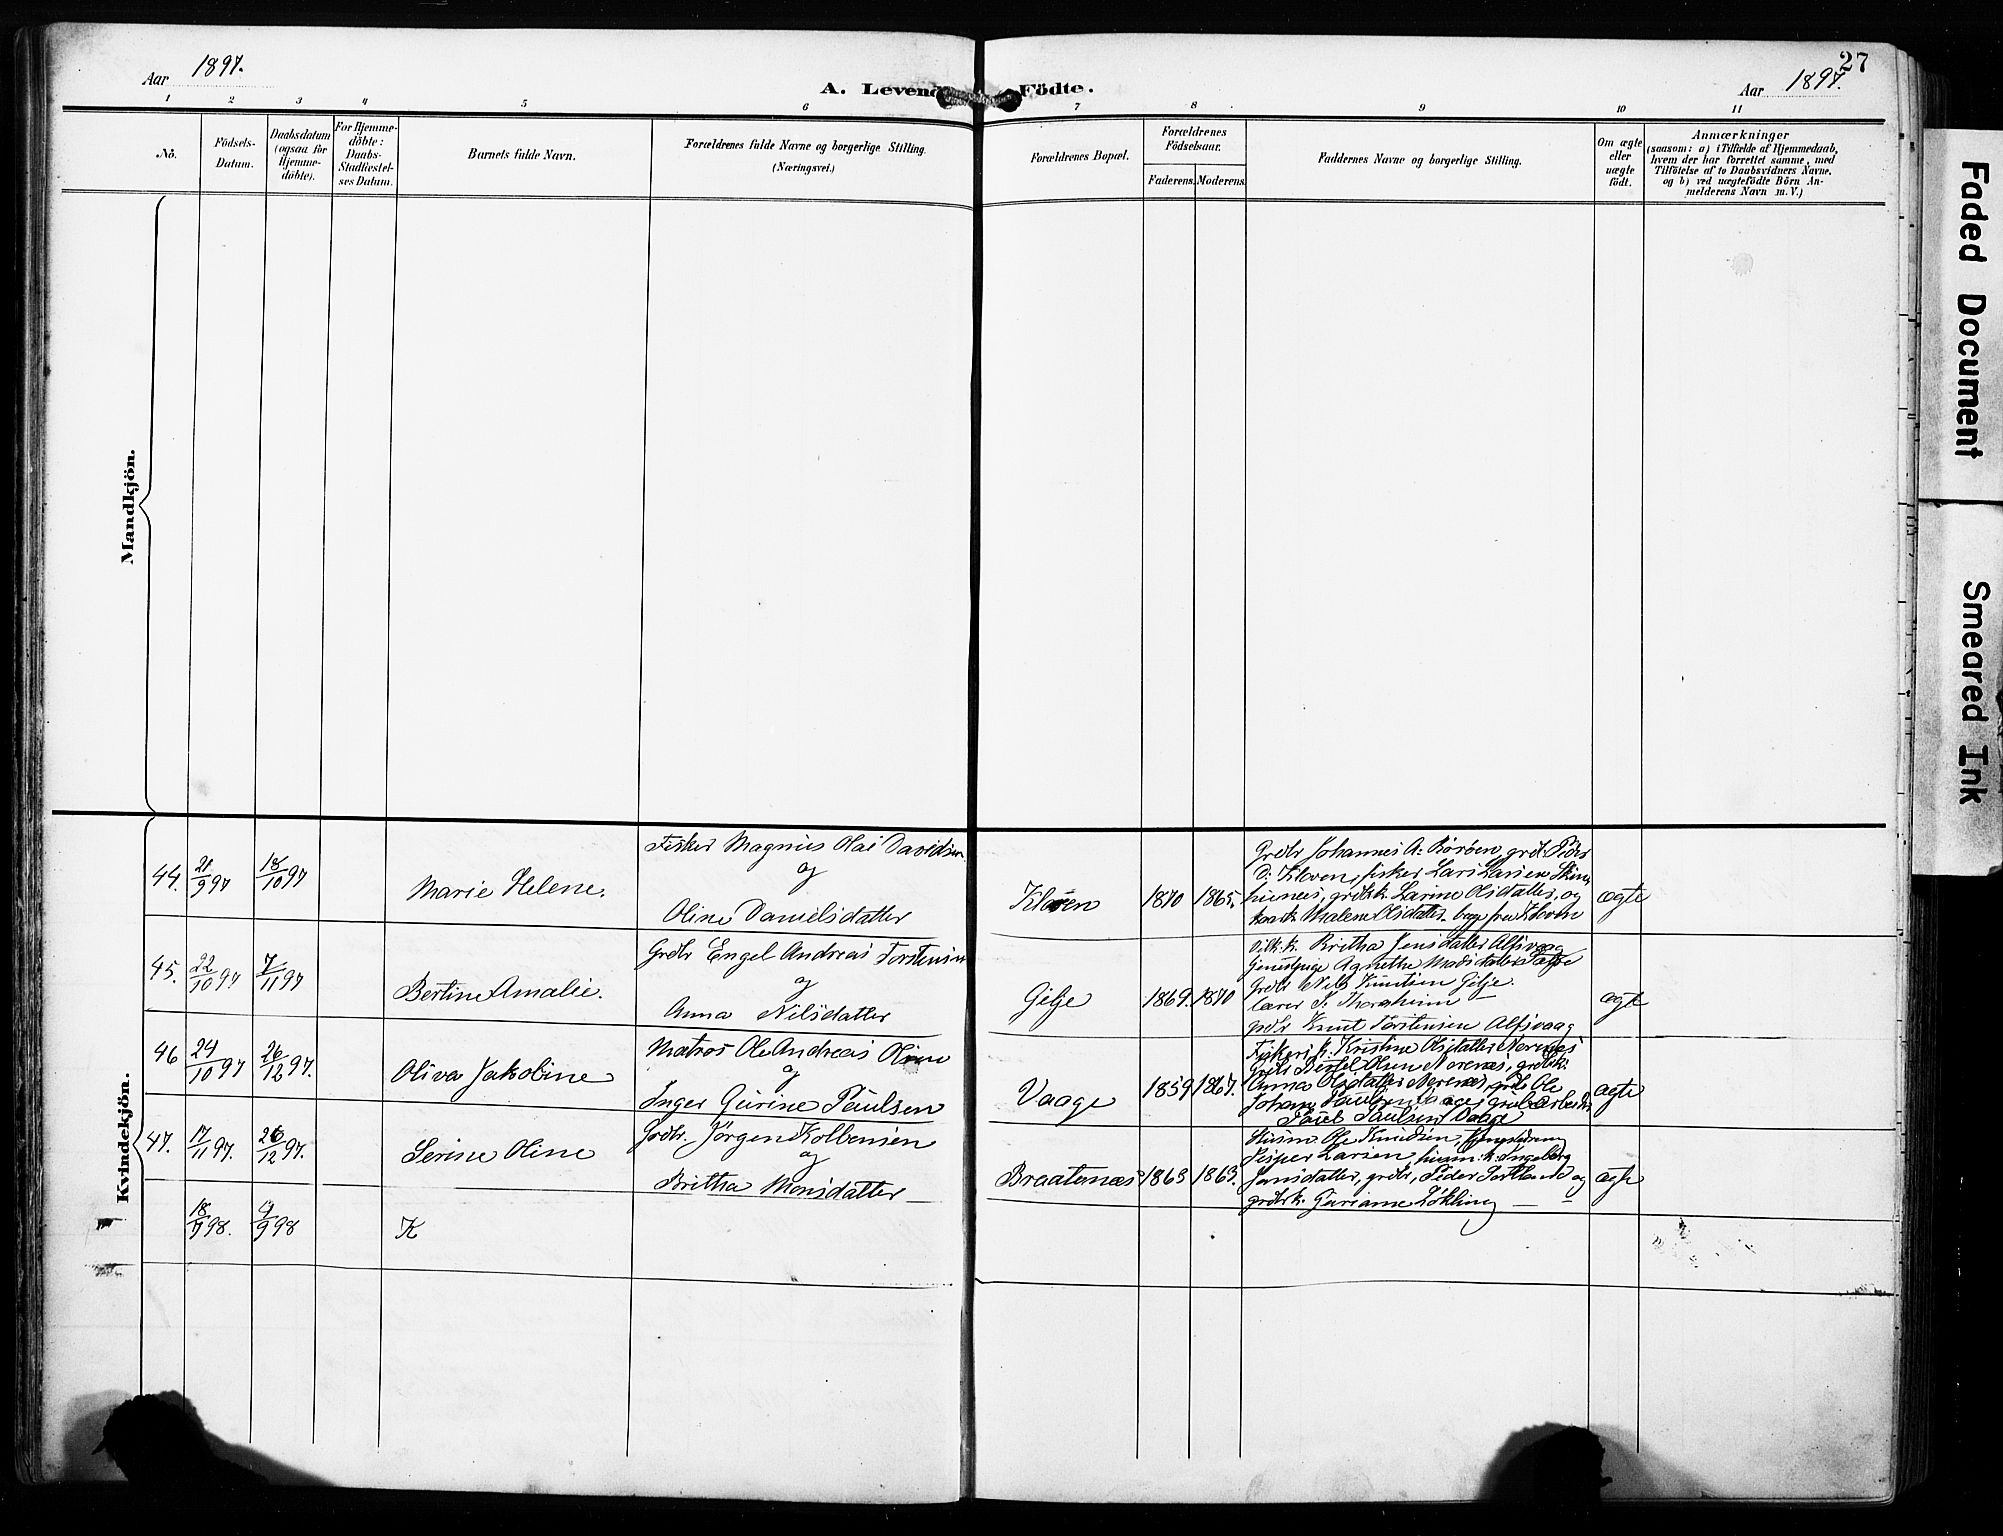 Aar 1897.
A. Levende Födte.
Aar 1897.
27
1 2 3 4 5 6 7 8 9 10 11
No.
Födsels-
Datum.
Daabsdatum
(ogsaa for
Hjemme-
döbte).
For Hjemme-
döbte:
Daabs-
Stadfæstel-
ses Datum.
Barnets fulde Navn.
Forældrenes fulde Navne og borgerlige Stilling.
(Næringsvei.)
Forældrenes Bopæl.
Forældrenes
Födselsaar.
Faderens. Moderens.
Faddernes Navne og borgerlige Stilling.
Om ægte
eller
uægte
födt.
Anmærkninger
(saasom: a) i Tilfælde af Hjemmedaab,
hvem der har forrettet samme, med
Tilföielse af to Daabsvidners Navne,
og b) ved uægtefödte Börn An-
melderens Navn m. V.)
Mandkjön.
Kvindekjön.
44. 21/9 97 18/10 97
Marie Helene.
Fisker Magnus Olai Davidsen
og
Oline Danielsdatter
Kloven 1870 1865.
Grdbr Johannes A. Röröen, grdbr. Peder
D. Kloven, fisker Lars Larsen
grdbrk. Larine Olsdatter, og
Malene Olsdatter, begge fra Kloven
ægte
45. 22/10 97 7/11 97
Bertine Amalie.
Grdbr Engel Andreas Torstensen
og
Anna Nilsdatter
Gilje 1869. 1870
Britha Jensdatter Alfsvaag
Agnethe Madsdatter
Grdbr Nils Knutsen Gilje.
Lærer T. Thorsheim
grdbr Knut Torstensen Alfsvaag
ægte
46 24/10 97 26/12 97.
Oliva Jakobine
Matros Ole Andreas Olsen
og
Inger Gurine Paulsen
Vaage 1859 1867.
Fiskers k. Kristine Olsdatter Nornes
Grdbr Bertel Olsen Nornes, grdbrk.
Anna Olsdatter Nornes, grdbr Ole
Johan Paulsen Vaage, grubearbeider
Paul Paulsen Vaage
ægte
47. 17/11 97. 26/12 97.
Serine Oline
Grdbr. Jörgen Kolbensen
og
Britha Monsdatter
Braatenæs 1863 1863.
Husm Ole Knudsen, Ungkarene
Jesper Larsen husm. k. Ingeborg
Jonsdatter, grdbr, Peder Sortland og
grdbrk. Gurianne Lökling
ægte
18/ 98. 4/9 98
K
Faded Document
Smeared Ink